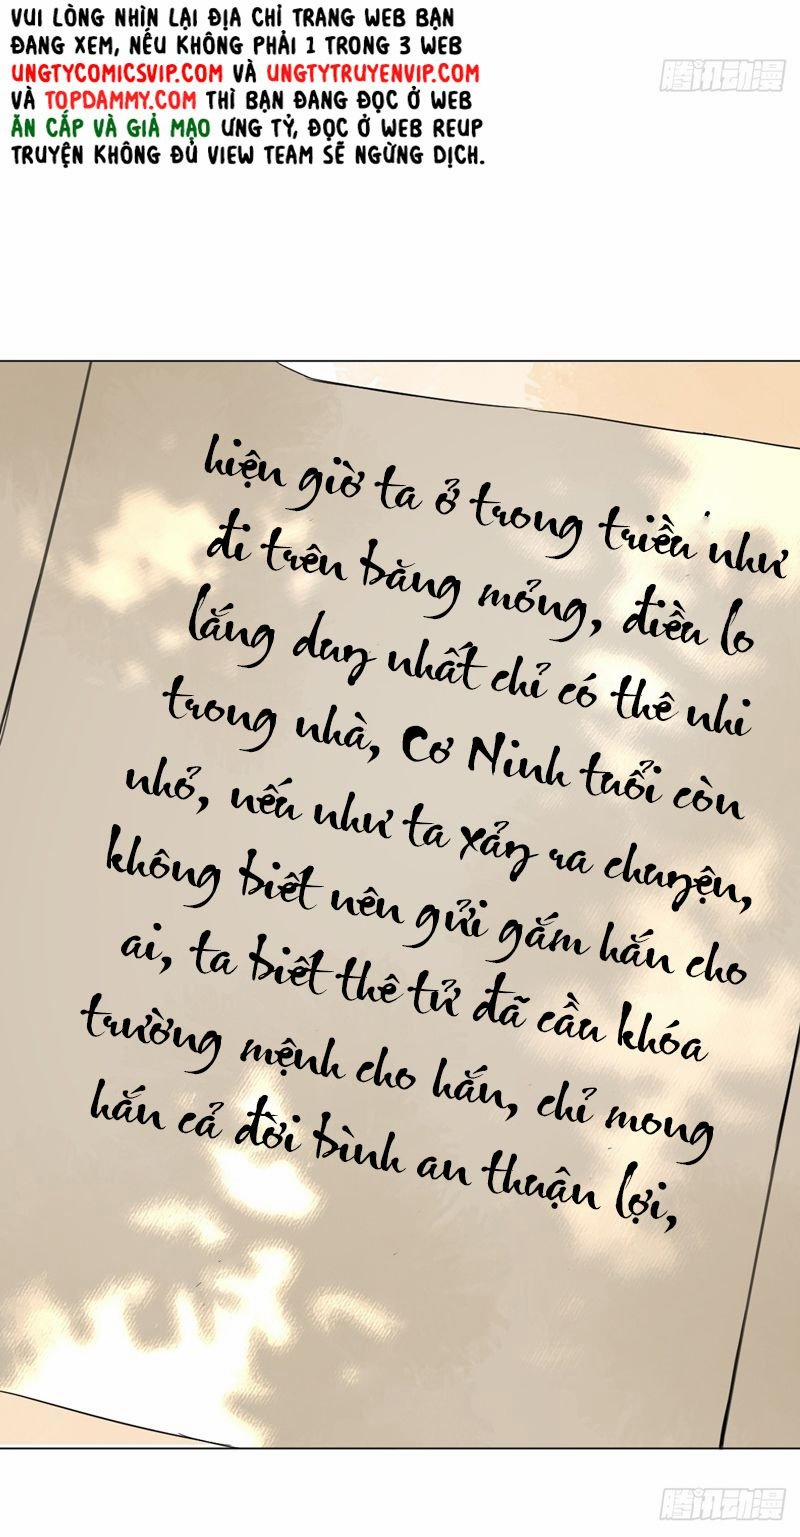 VUI LÒNG NHÌN LẠI ĐỊA CHỈ TRANG WEB BẠN
ĐANG XEM, NẾU KHÔNG PHẢI 1 TRONG 3 WEB
UNGTYCOMICSVIP.COM VÀ UNGTYTRUYENVIP.COM
VÀ TOPDAMMY.COM THÌ BẠN ĐANG ĐỌC Ở WEB
ĂN CẮP VÀ GIẢ MẠO ƯNG TỶ, ĐỌC Ở WEB REUP
TRUYỆN KHÔNG ĐỦ VIEW TEAM SẼ NGỪNG DỊCH.
腾讯动漫
hiện giờ ta ở trong triều như
đi trên băng mỏng, điều lo
lắng duy nhất chỉ có thê nhi
trong nhà, Cơ Ninh tuổi còn
nhỏ, nếu như ta xảy ra chuyện,
không biết nên gửi gắm hắn cho
ai, ta biết thê tử đã cầu khóa
trường mệnh cho hắn, chỉ mong
hắn cả đời bình an thuận lợi,
腾讯动漫